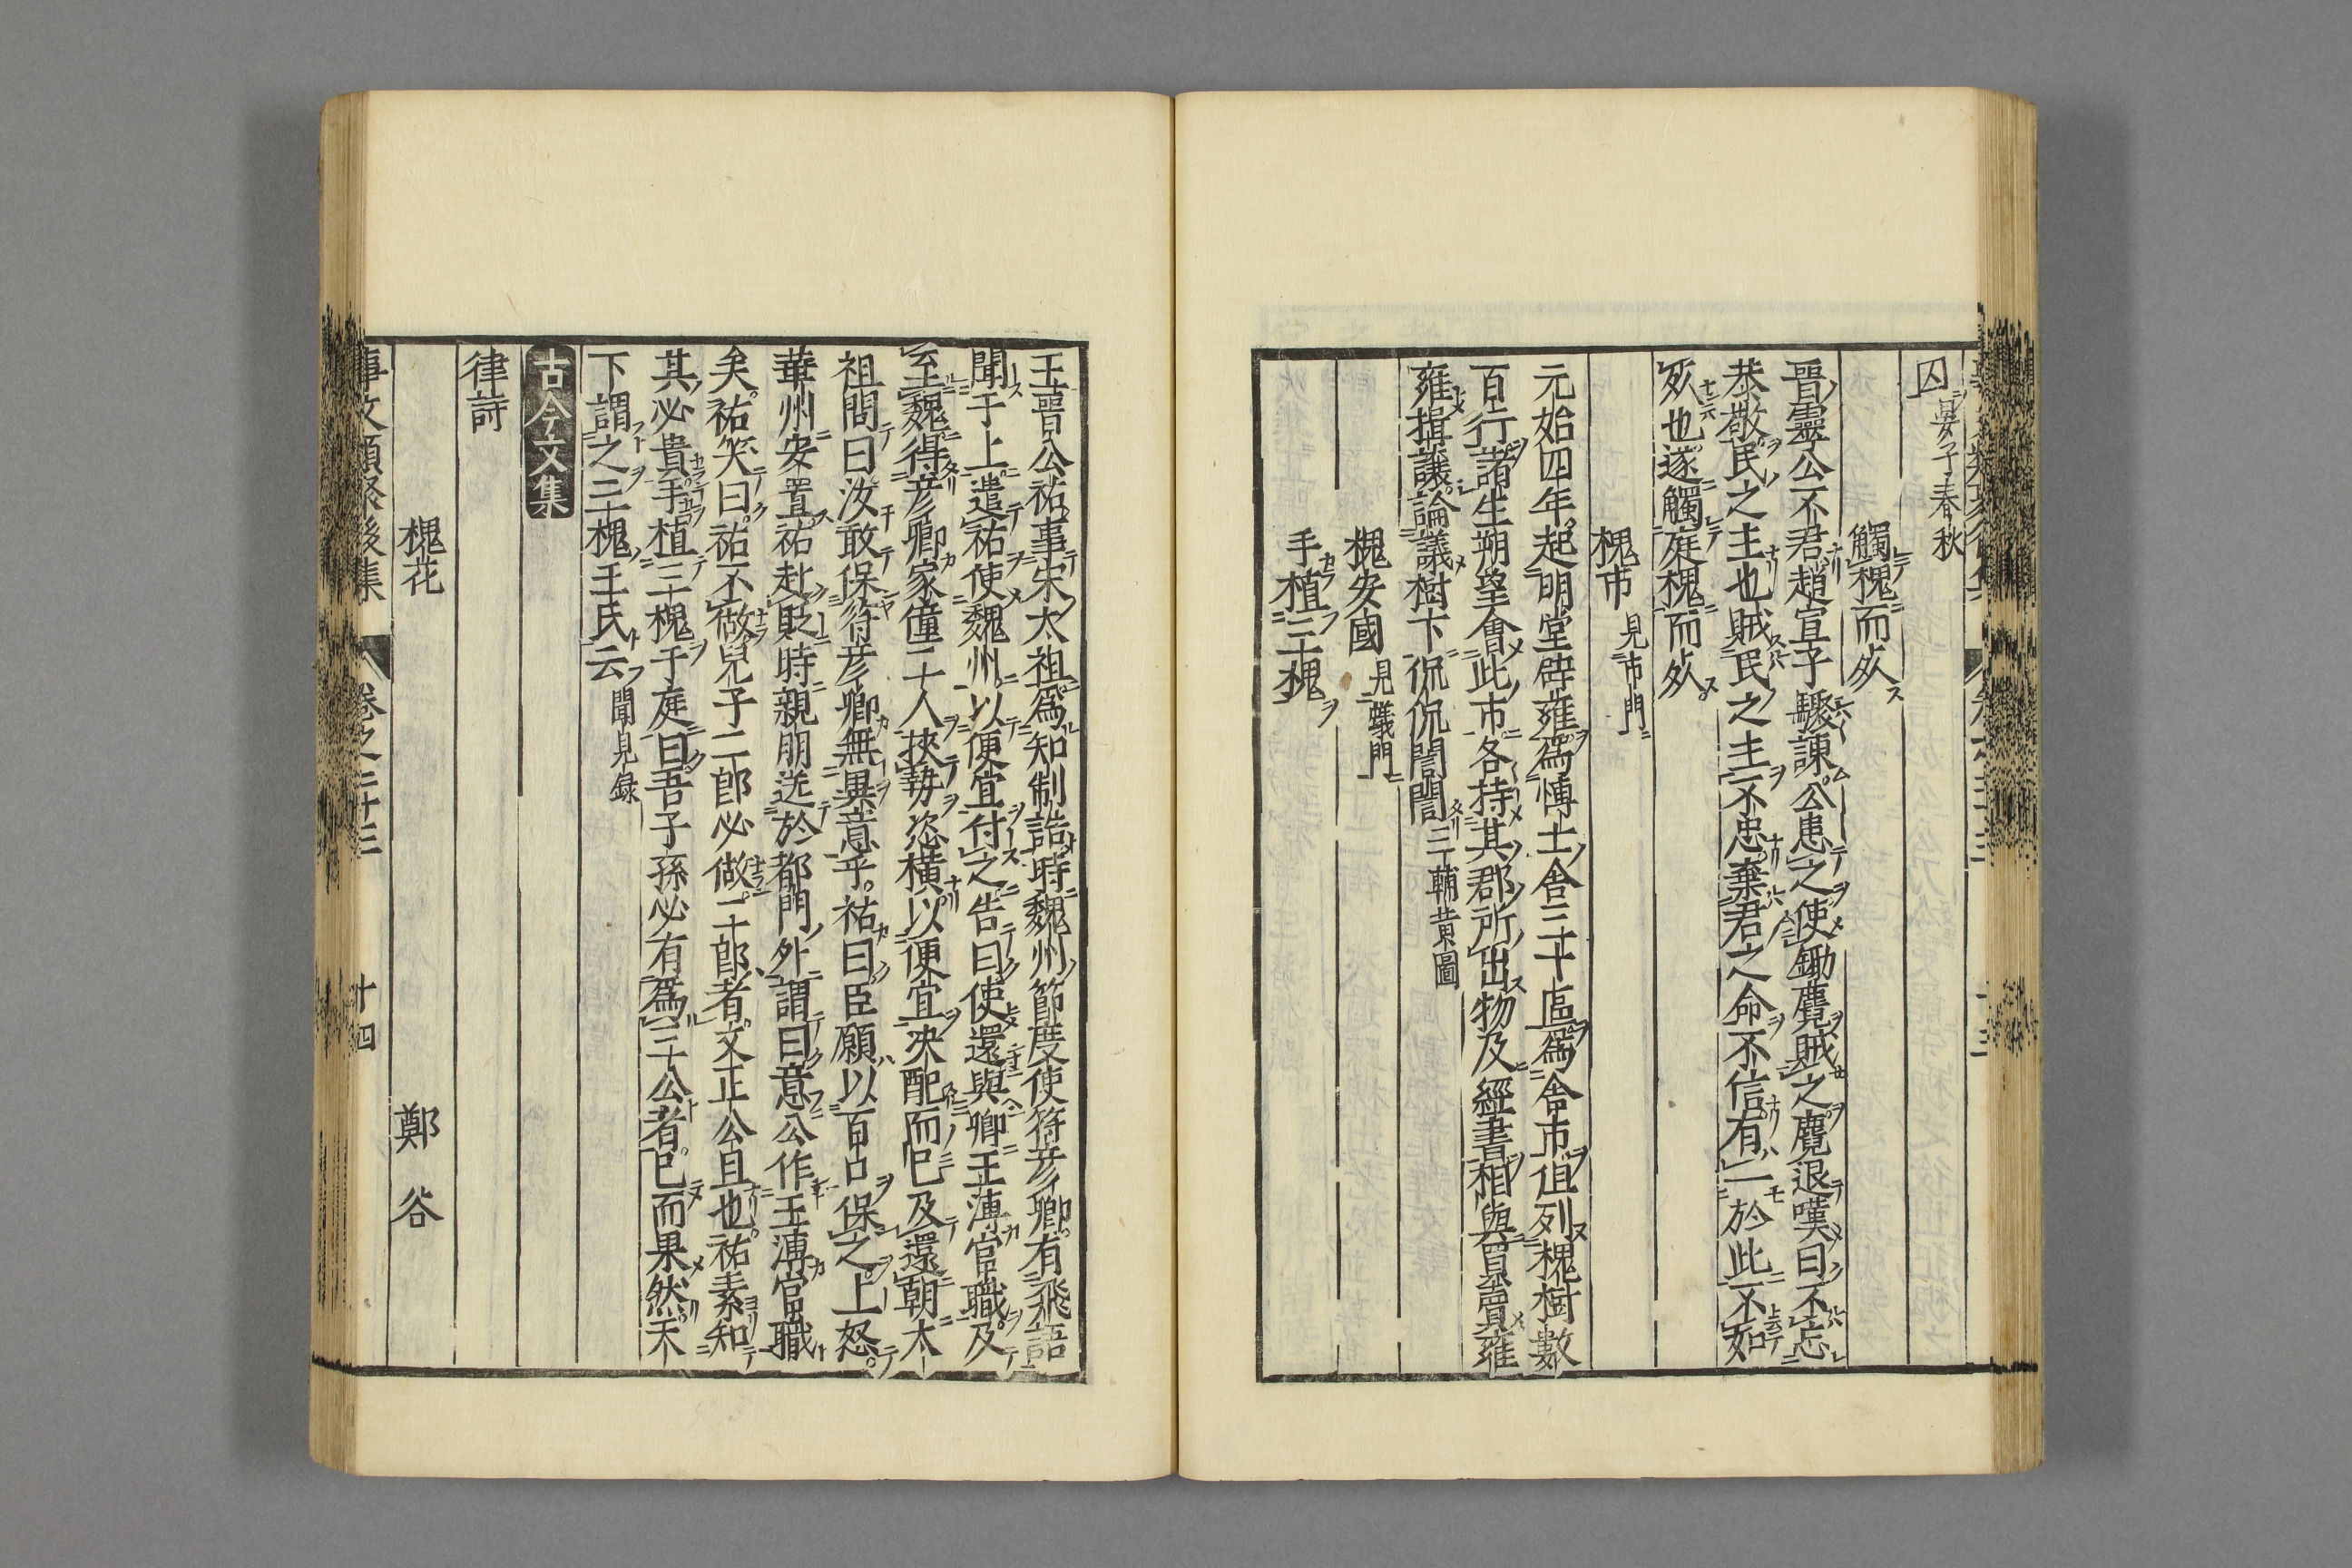 囚 晏子春秋
觸槐而死
晉靈公不君趙宣子驟諫公患之使鋤麑賊之麑退嘆曰不忘
恭敬民之主也賊民之主不忠棄君之命不信有一於此不如
死也遂觸庭槐而死
槐市 見市門
元始四年起明堂辟雍爲博士舍三十區爲舍市但列槐樹數
百行諸生朔望會此市各持其郡所出物及經書相與買賣雍
雍揖讓論議樹下侃侃誾誾 三輔黃圖
槐安國 見蟻門
手植三槐
王晉公祐事宋太祖爲知制誥時魏州節度使符彥卿有飛語
聞于上遣祐使魏州以便宜付之告曰使還與卿王溥官職及
至魏得彥卿家僮二人挾勢恣橫以便宜决配而已及還朝太
祖問曰汝敢保符彥卿無異意乎祐曰臣願以百口保之上怒
華州安置祐赴貶時親朋送於都門外謂曰意公作王溥官職
矣祐笑曰祐不做兒子二郎必做二郎者文正公旦也祐素知
其必貴手植三槐于庭曰吾子孫必有爲三公者已而果然天
下謂之三槐王氏云 聞見録
古今文集
律詩
槐花 鄭谷
事文類聚後集 卷之二十三 十四